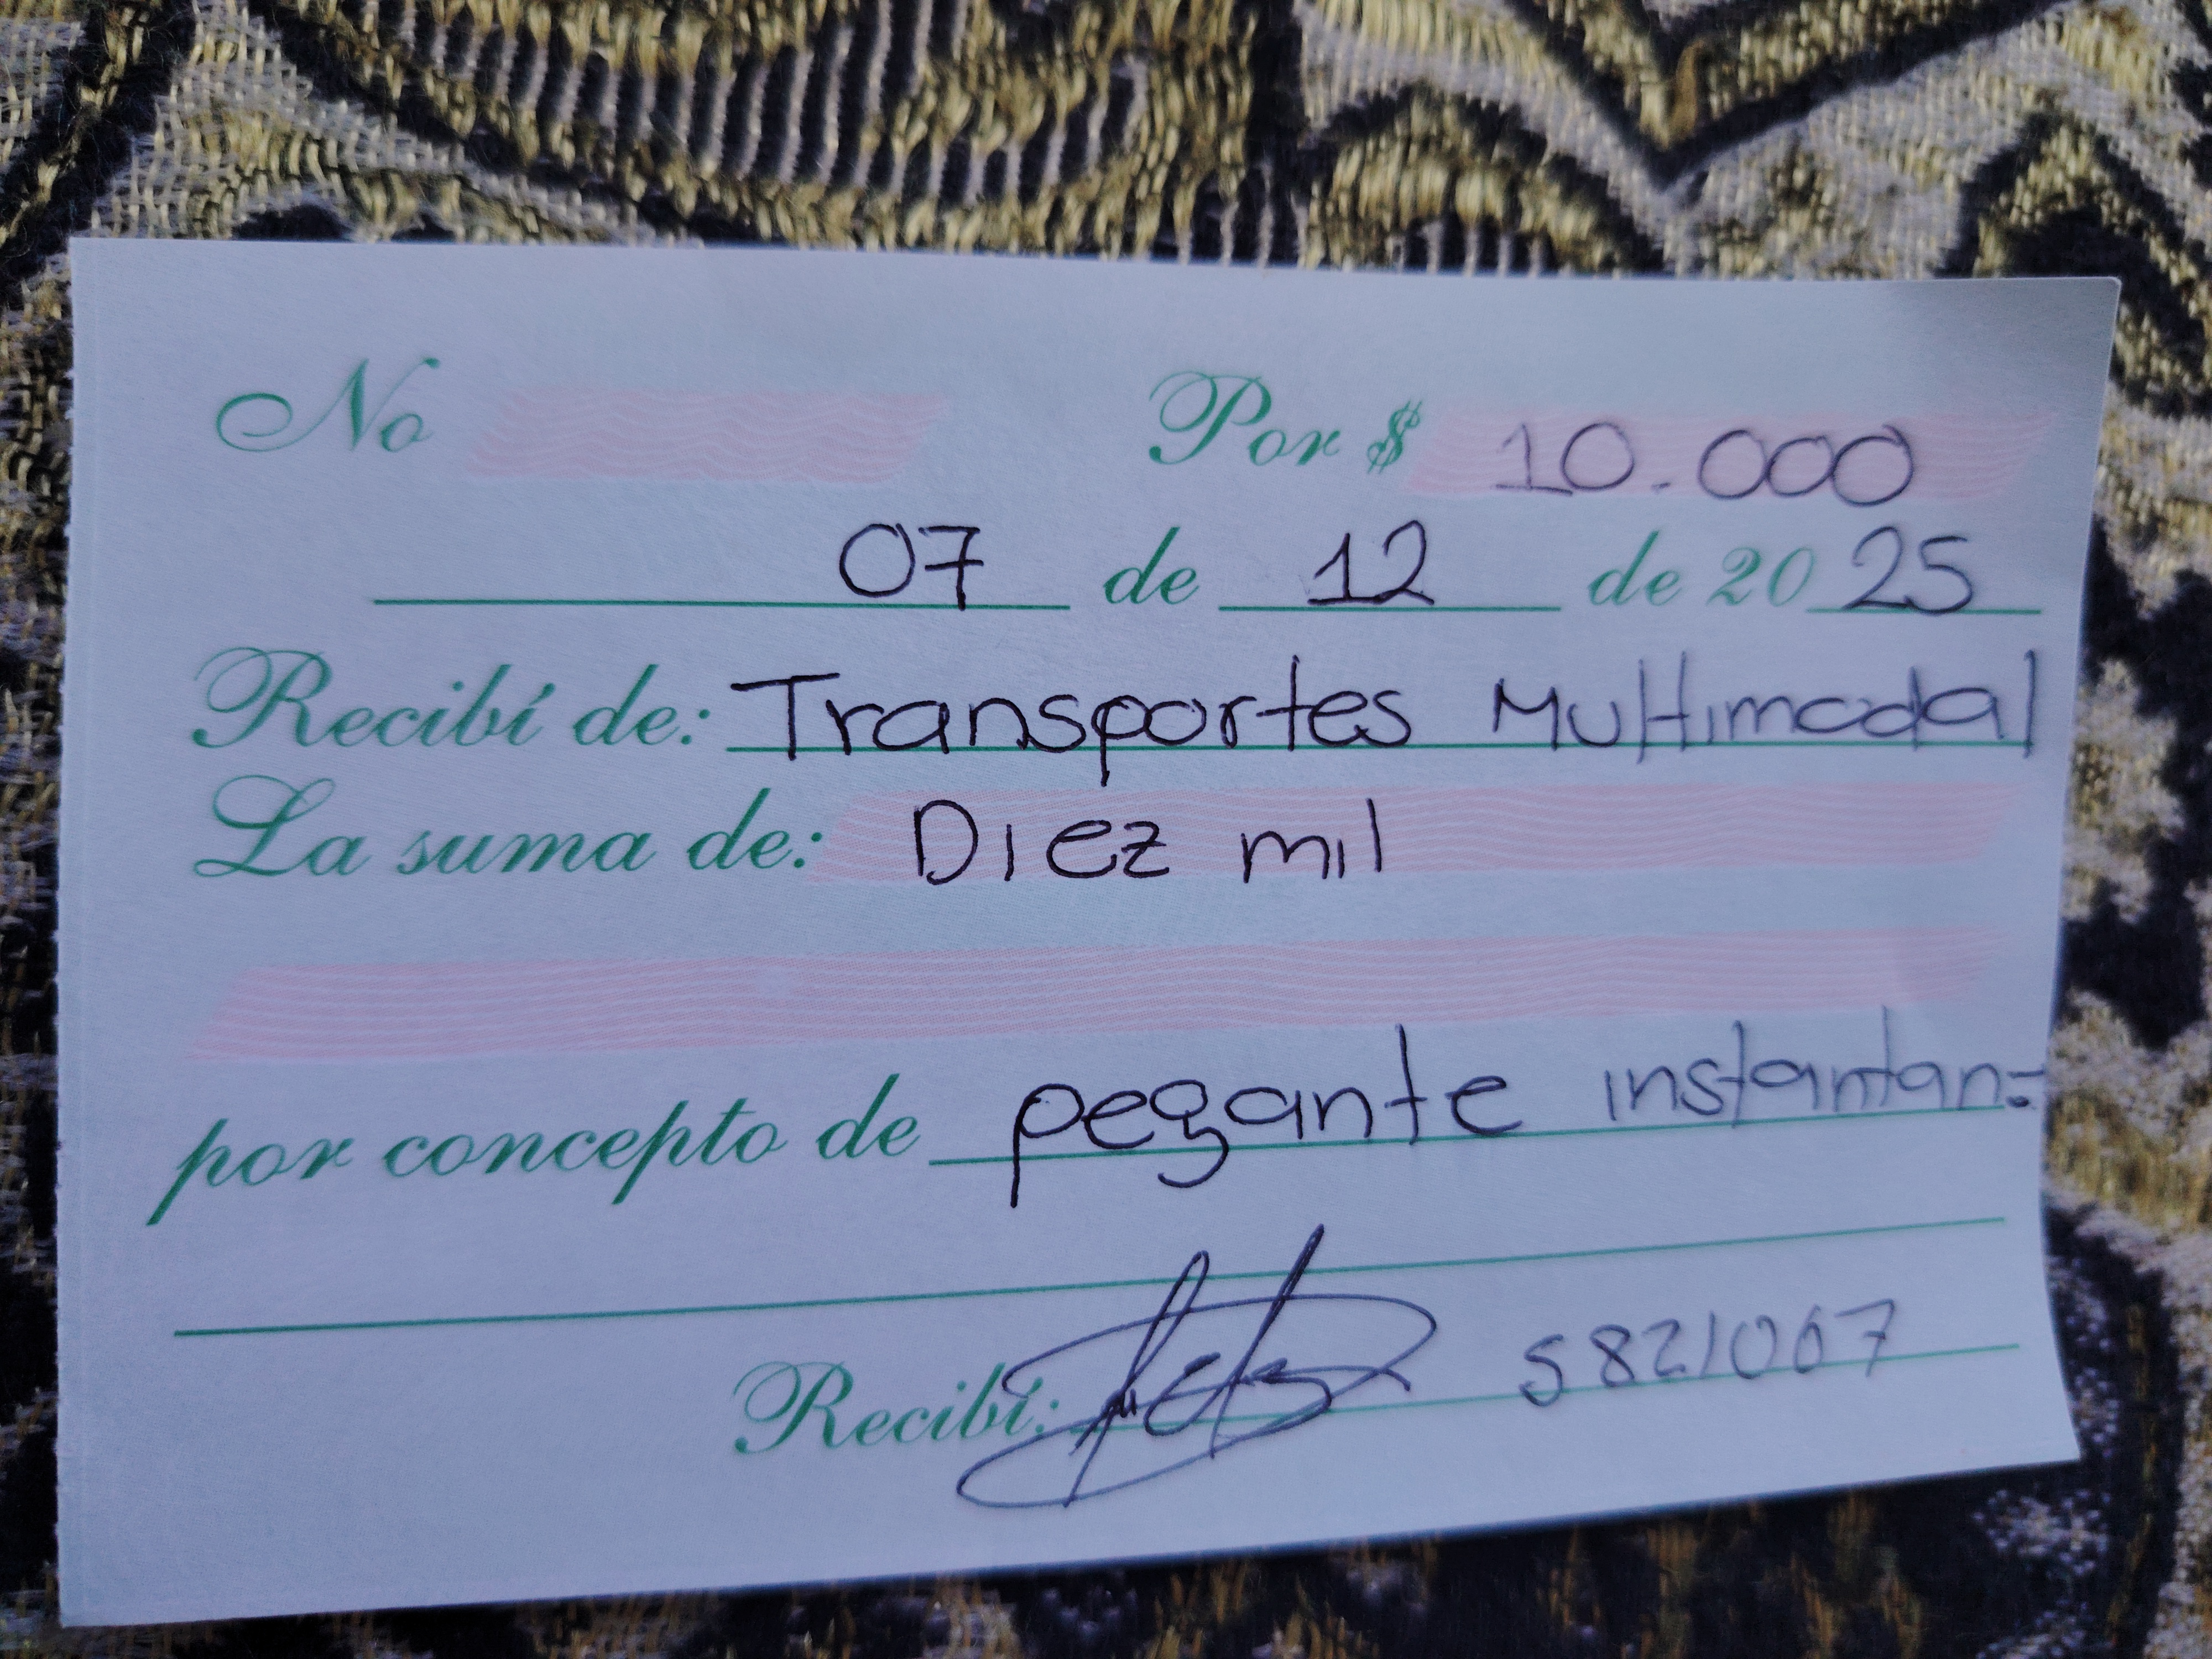 No Por $ 10.000
07 de 12 de 2025
Recibí de: Transportes Multimodal
La suma de: Diez mil
por concepto de pegante instantan=
Recibí: 5821067